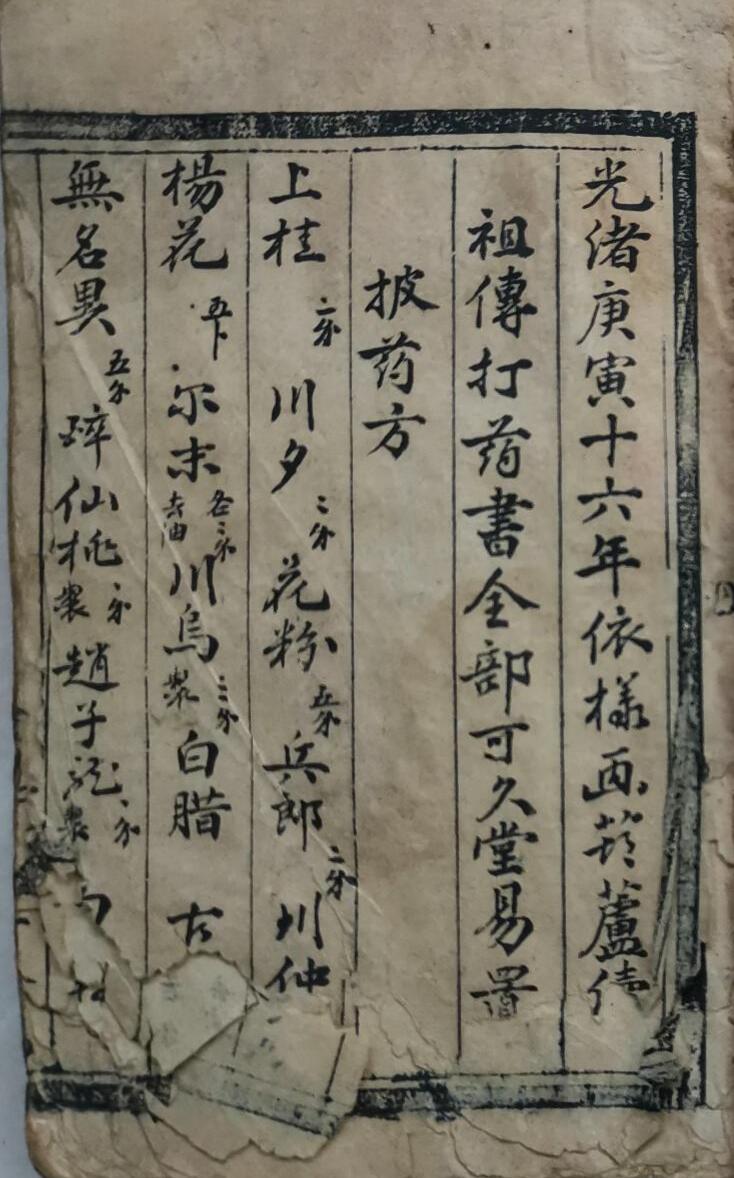 光绪庚寅十六年依樣画葫蘆
祖傳打药書全部可久堂易置
披药方
上桂二分 川夕二分 花粉五分 兵郎二分 川仲
楊花五下 尔末各二分去油 川烏製二分 白腊 古
無名異五分 碎仙桃製二分 趙子龙製二分